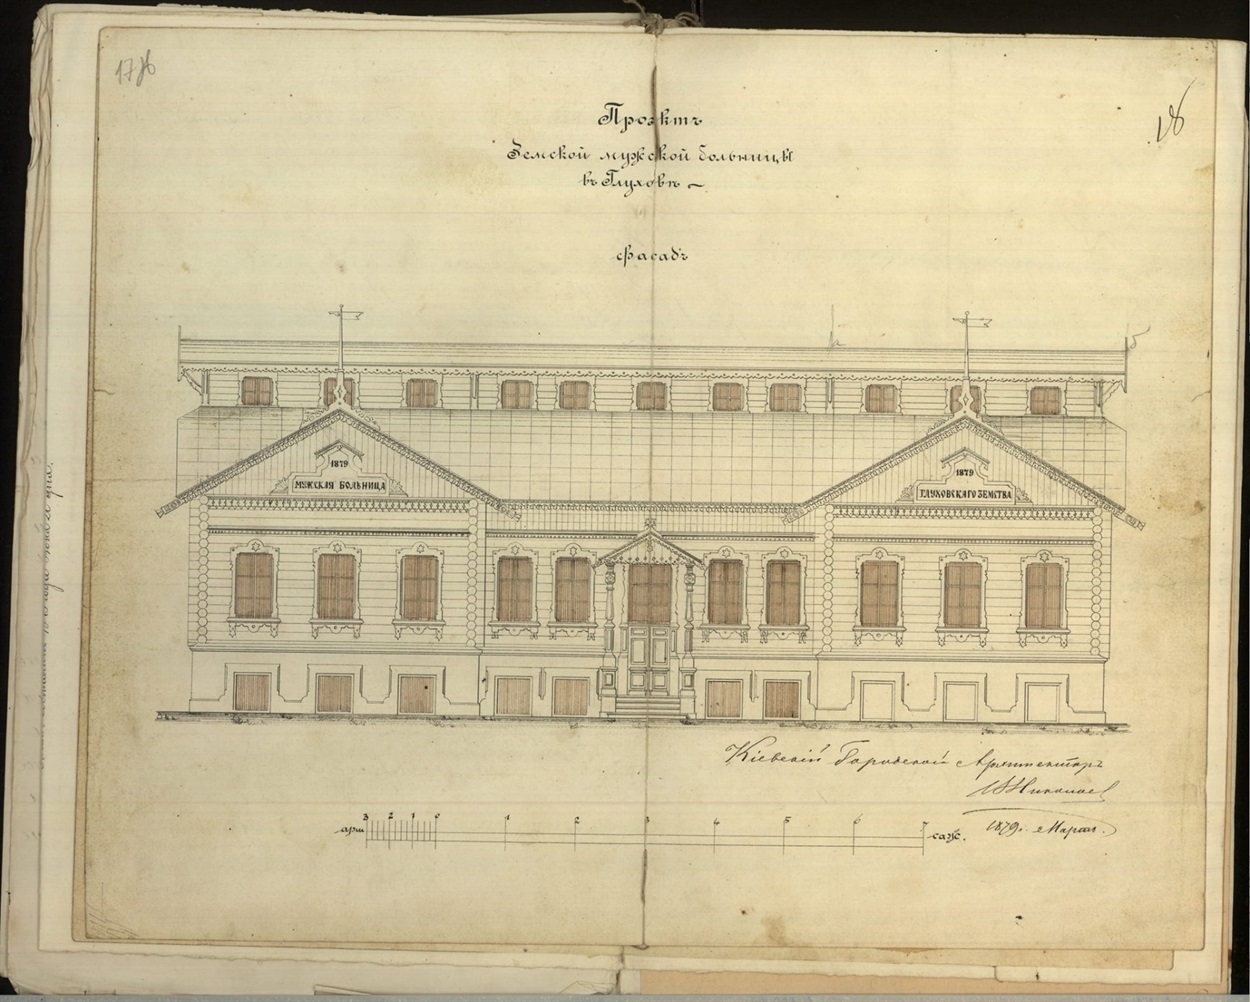 Проэктъ
Земской мужской больницы
въ Глуховѣ
фасадъ
1879
МУЖСКАЯ БОЛЬНИЦА
1879
ГЛУХОВСКАГО ЗЕМСТВА
Кіевскій Городской Архитекторъ
ВНиколаев
1879. Март.
арш. 3 2 1 0 1 2 3 4 5 6 7 саж.